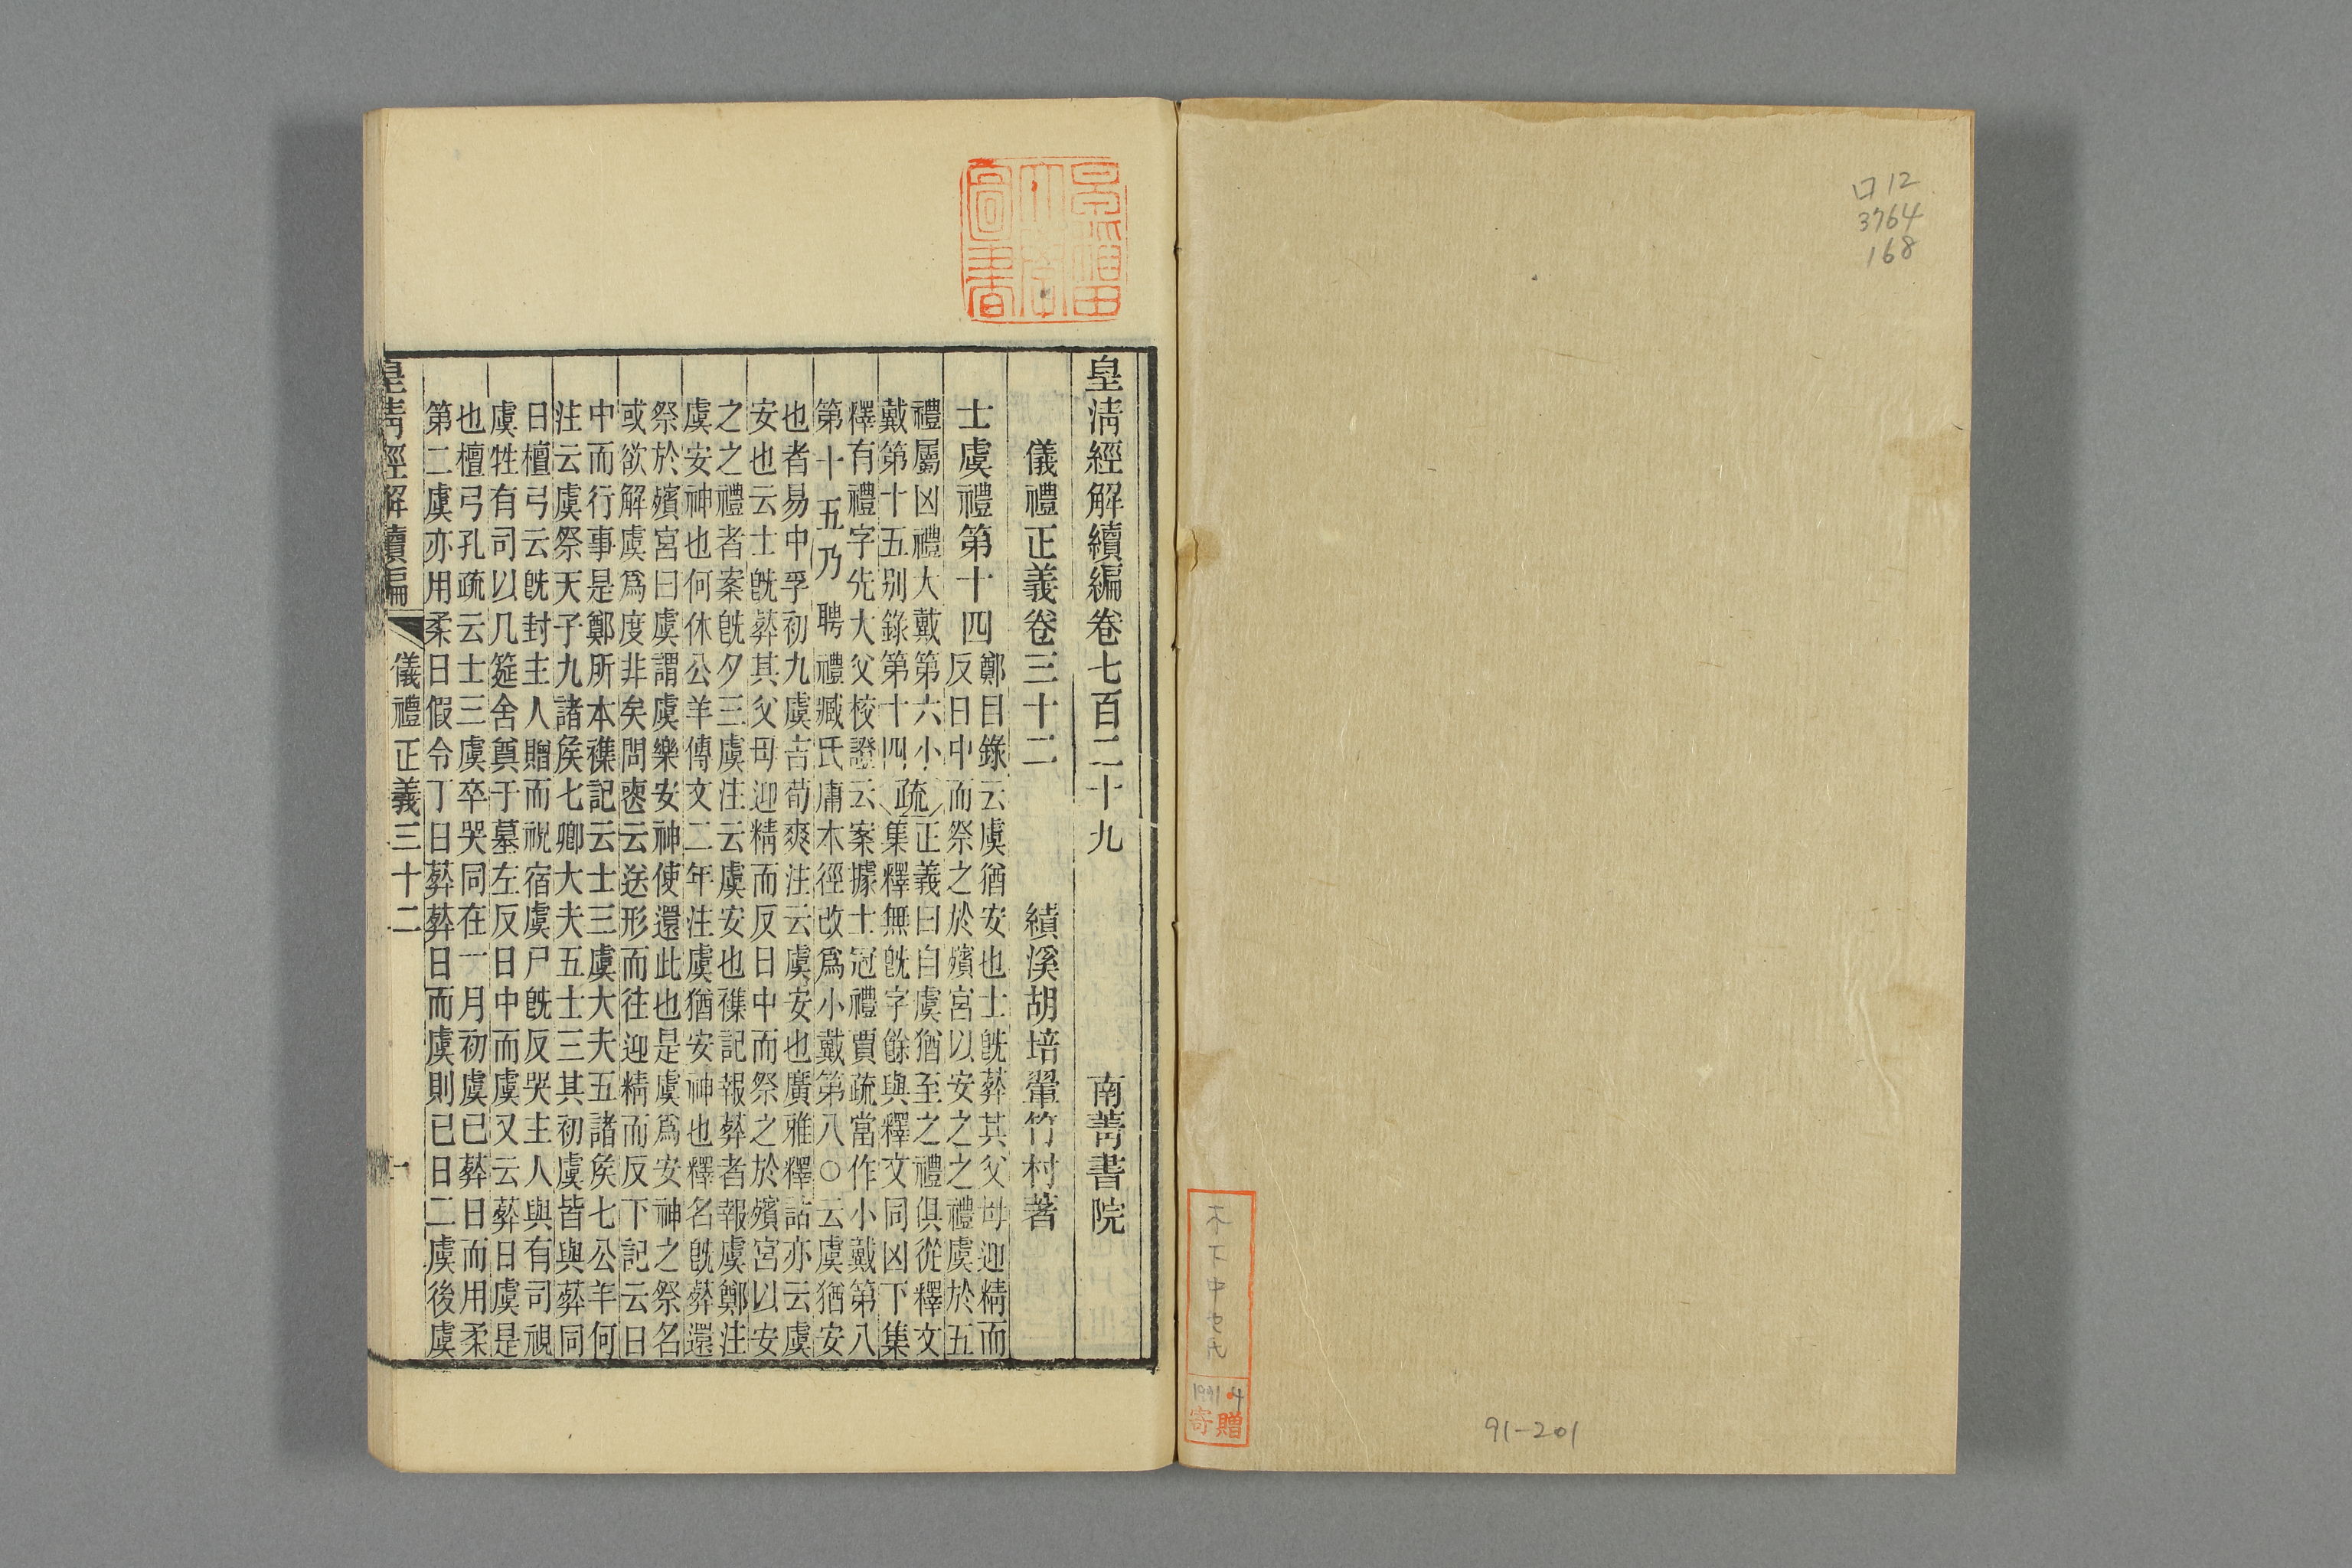 口12
3764
168
木下中也氏
1991.4
寄贈
91-201
皇清經解續編卷七百二十九 南菁書院
儀禮正義卷三十二 績溪胡培翬竹村著
士虞禮第十四
鄭目錄云虞猶安也士旣葬其父母迎精而
反日中而祭之於殯宮以安之之禮虞於五
禮屬凶禮大戴第六小
戴第十五别錄第十四
疏
正義曰自虞猶至之禮俱從釋文
集釋無旣字餘與釋文同凶下集
釋有禮字先大父校證云案據士冠禮賈疏當作小戴第八
第十五乃聘禮臧氏庸木徑改爲小戴第八○云虞猶安
也者易中孚初九虞吉荀爽注云虞安也廣雅釋詁亦云虞
安也云士旣葬其父母迎精而反日中而祭之於殯宮以安
之之禮者案旣夕三虞注云虞安也襍記報葬者報虞鄭注
虞安神也何休公羊傳文二年注虞猶安神也釋名旣葬還
祭於殯宮曰虞謂虞樂安神使還此也是虞爲安神之祭名
或欲解虞爲度非矣問喪云送形而往迎精而反下記云日
中而行事是鄭所本襍記云士三虞大夫五諸矦七公羊何
注云虞祭天子九諸矦七卿大夫五士三其初虞皆與葬同
日檀弓云旣封主人贈而祝宿虞尸旣反哭主人與有司視
虞牲有司以几筵舍奠于墓左反日中而虞又云葬日虞是
也檀弓孔疏云士三虞卒哭同在一月初虞已葬日而用柔
第二虞亦用柔日假令丁日葬葬日而虞則已日二虞後虞
皇清經解續編 儀禮正義三十二 一